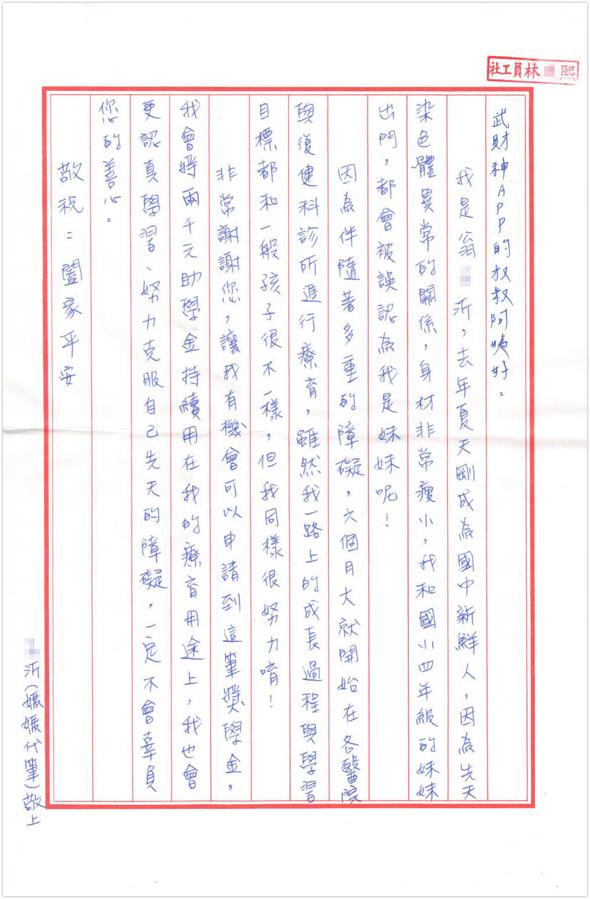 社工員林熙
武財神APP的叔叔阿姨好。
我是翁沂，去年夏天剛成為國中新鮮人，因為先天
染色體異常的關係，身材非常瘦小，我和國小四年級的妹妹
出門，都會被誤認為我是妹妹呢！
因為伴隨著多重的障礙，六個月大就開始在各醫院
與復健科診所進行療育，雖然我一路上的成長過程與學習
目標都和一般孩子很不一樣，但我同樣很努力唷！
非常謝謝您，讓我有機會可以申請到這筆獎學金，
我會將兩千元助學金持續用在我的療育用途上，我也會
更認真學習、努力克服自己先天的障礙，一定不會辜負
您的善心。
敬祝：闔家平安
沂(媽媽代筆)敬上